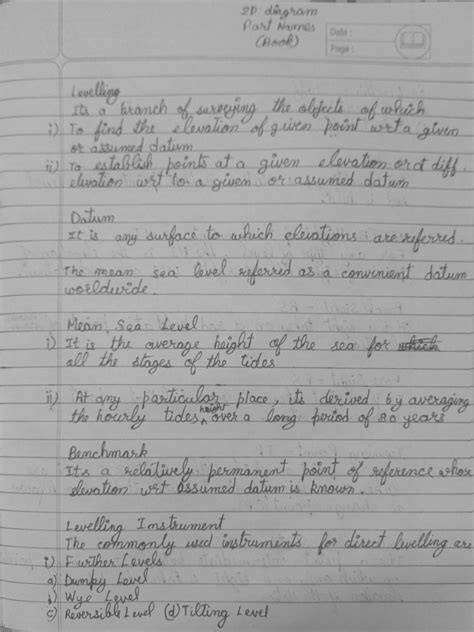 2D diagram
Part Names
(Book)
Date :
Page :
Levelling
Its a branch of surveying the objects of which
i) To find the elevation of given point wrt a given
or assumed datum
ii) To establish points at a given elevation or at diff.
elevation wrt to a given or assumed datum
Datum
It is any surface to which elevations are referred.
The mean sea level referred as a convenient datum
worldwide.
Mean Sea Level
i) It is the average height of the sea for which
all the stages of the tides
ii) At any particular place, its derived by averaging
the hourly tides height over a long period of 20 years
Benchmark
Its a relatively permanent point of reference whose
elevation wrt assumed datum is known.
Levelling Instrument
The commonly used instruments for direct levelling are
i) Further Levels
a) Dumpy Level
b) Wye Level
c) Reversible Level (d) Tilting Level